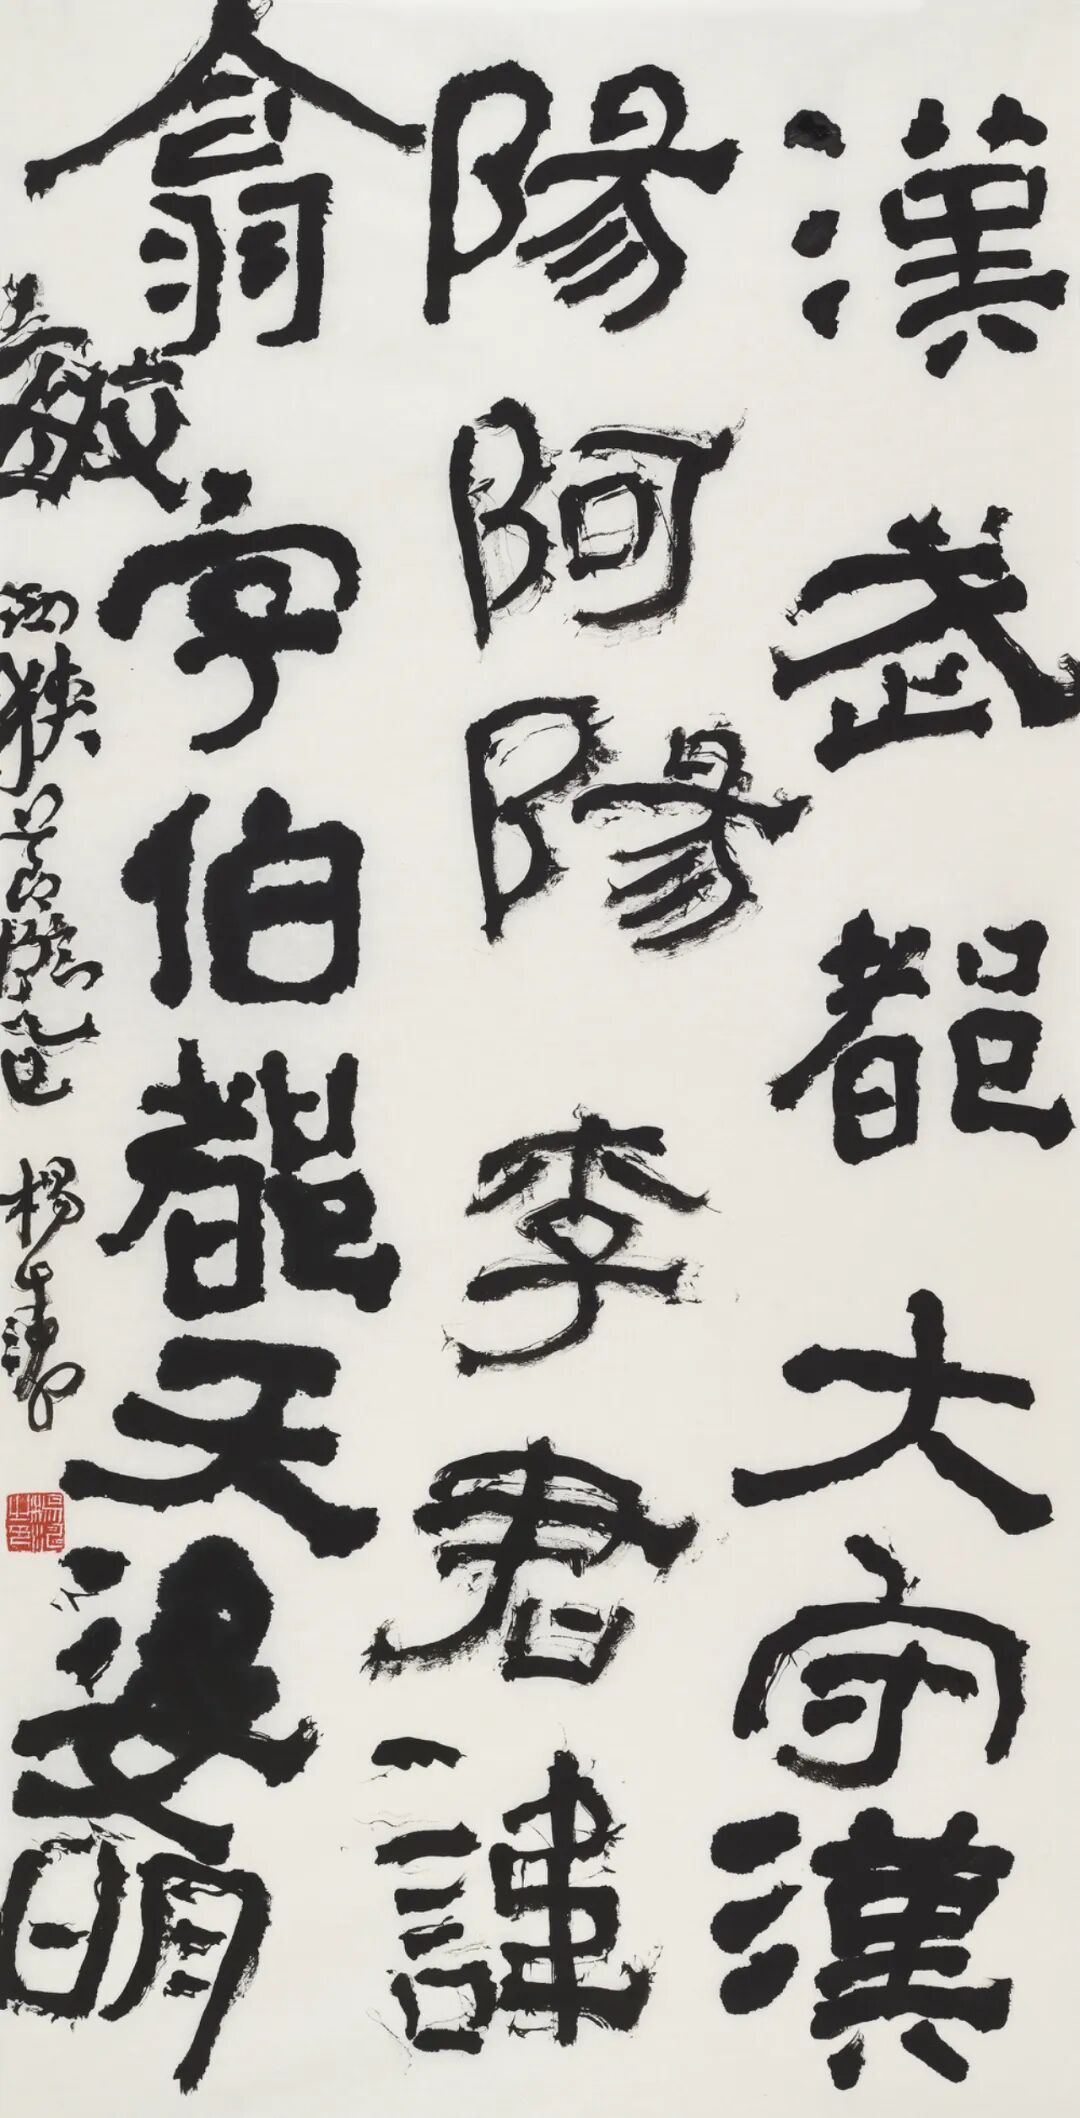 漢武都大守漢
陽阿陽李君諱
翕字伯都天姿明
敏西狹頌節臨 楊濤